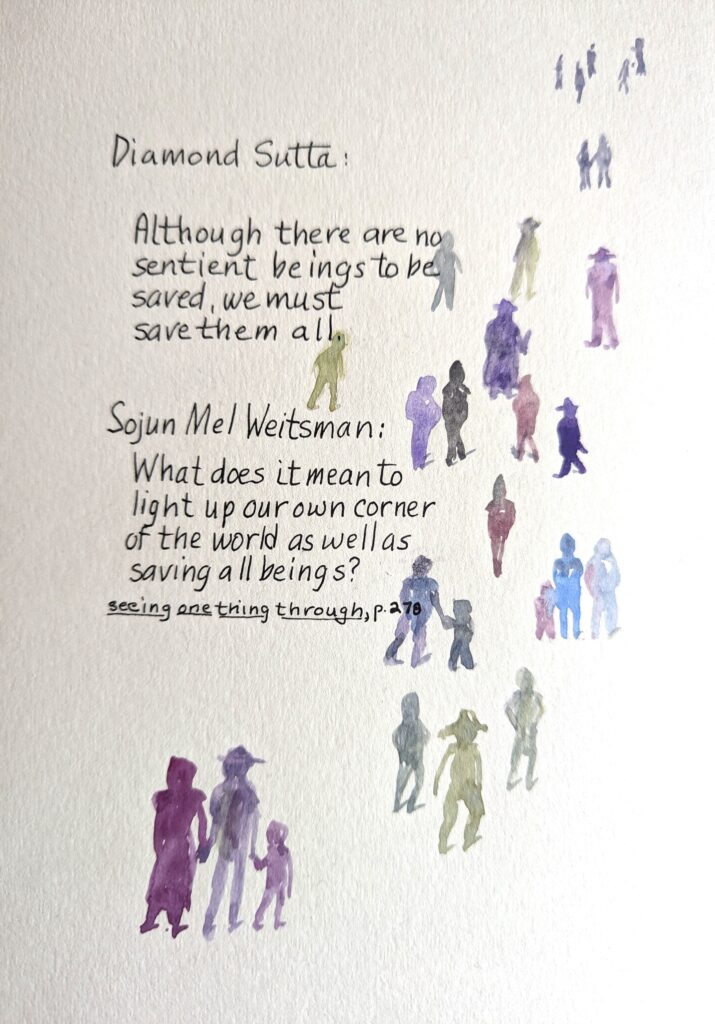 Diamond Sutta:
Although there are no
sentient beings to be
saved, we must
save them all.
Sojun Mel Weitsman:
What does it mean to
light up our own corner
of the world as well as
saving all beings?
seeing one thing through, p. 278